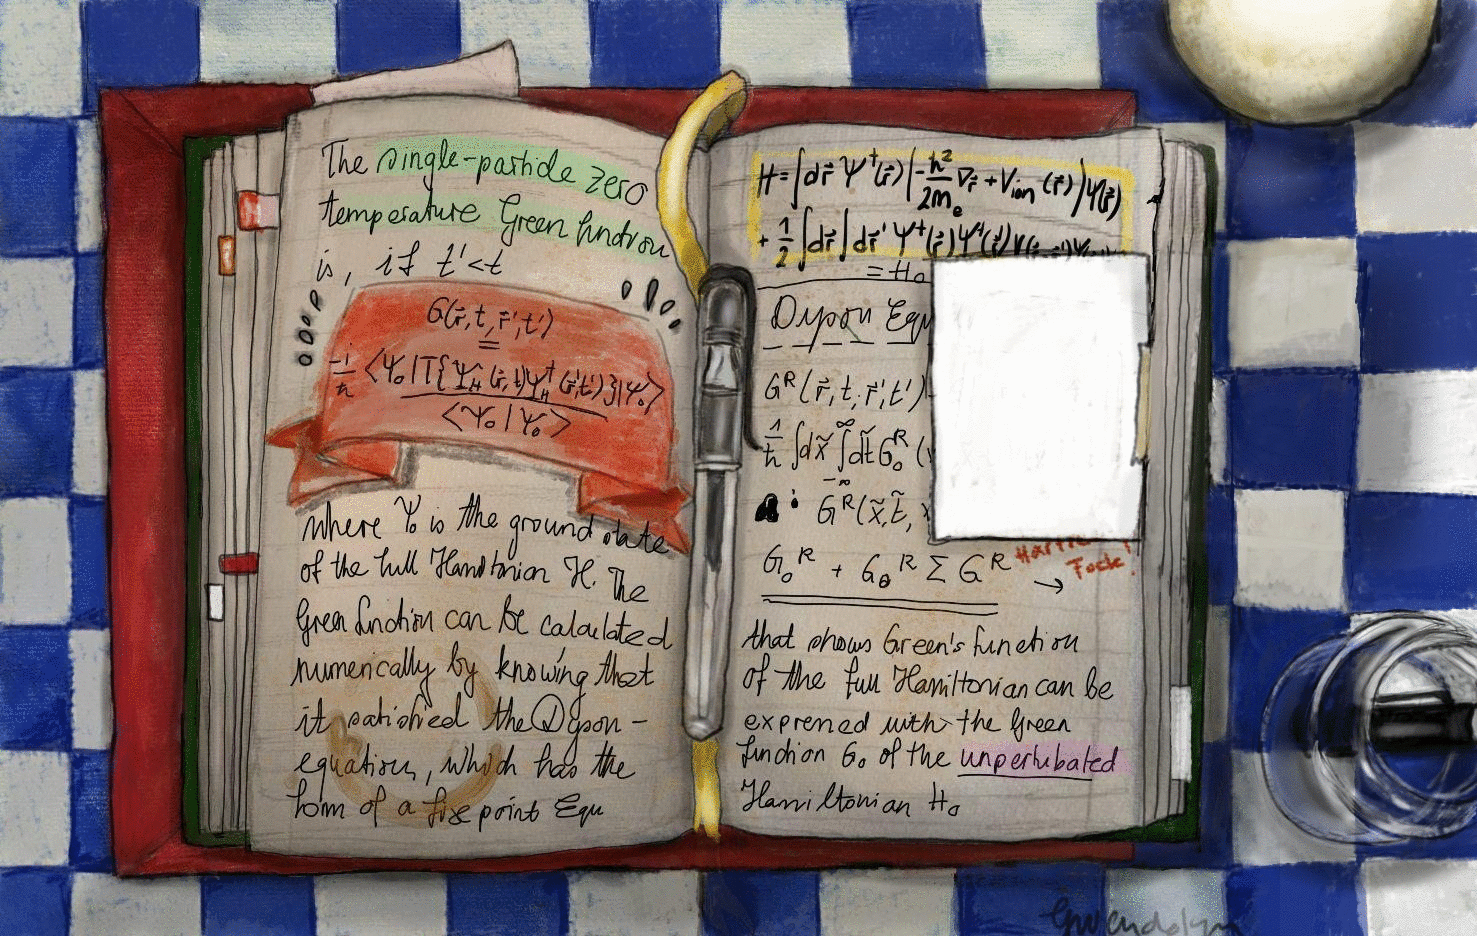 The single-particle zero
temperature Green function
is, if t'<t
G(r⃗,t,r⃗',t')
=
-i/ħ <Ψ₀|T{Ψ_H(r⃗,t)Ψ_H†(r⃗',t')}|Ψ₀>
<Ψ₀|Ψ₀>
where Ψ₀ is the ground state
of the full Hamiltonian H. The
Green function can be calculated
numerically by knowing that
it satisfied the Dyson-
equation, which has the
form of a fixe point Equ
H=∫dr⃗ Ψ†(r⃗)(-ħ²/2mₑ ∇r⃗+V_ion(r⃗))Ψ(r⃗)
+ 1/2 ∫dr⃗∫dr⃗' Ψ†(r⃗)Ψ†(r⃗')V(r⃗
= H₀
Dyson Equ
Gᴿ(r⃗,t,r⃗',t')
1/ħ ∫dx̃ ∫dt̃ G₀ᴿ(
-∞ ∞
Gᴿ(x̃,t̃,
G₀ᴿ + G₀ᴿ Σ Gᴿ →
Fock!
that shows Green's function
of the full Hamiltonian can be
expressed with the Green
function G₀ of the unpertubated
Hamiltonian H₀
Gwendolyn